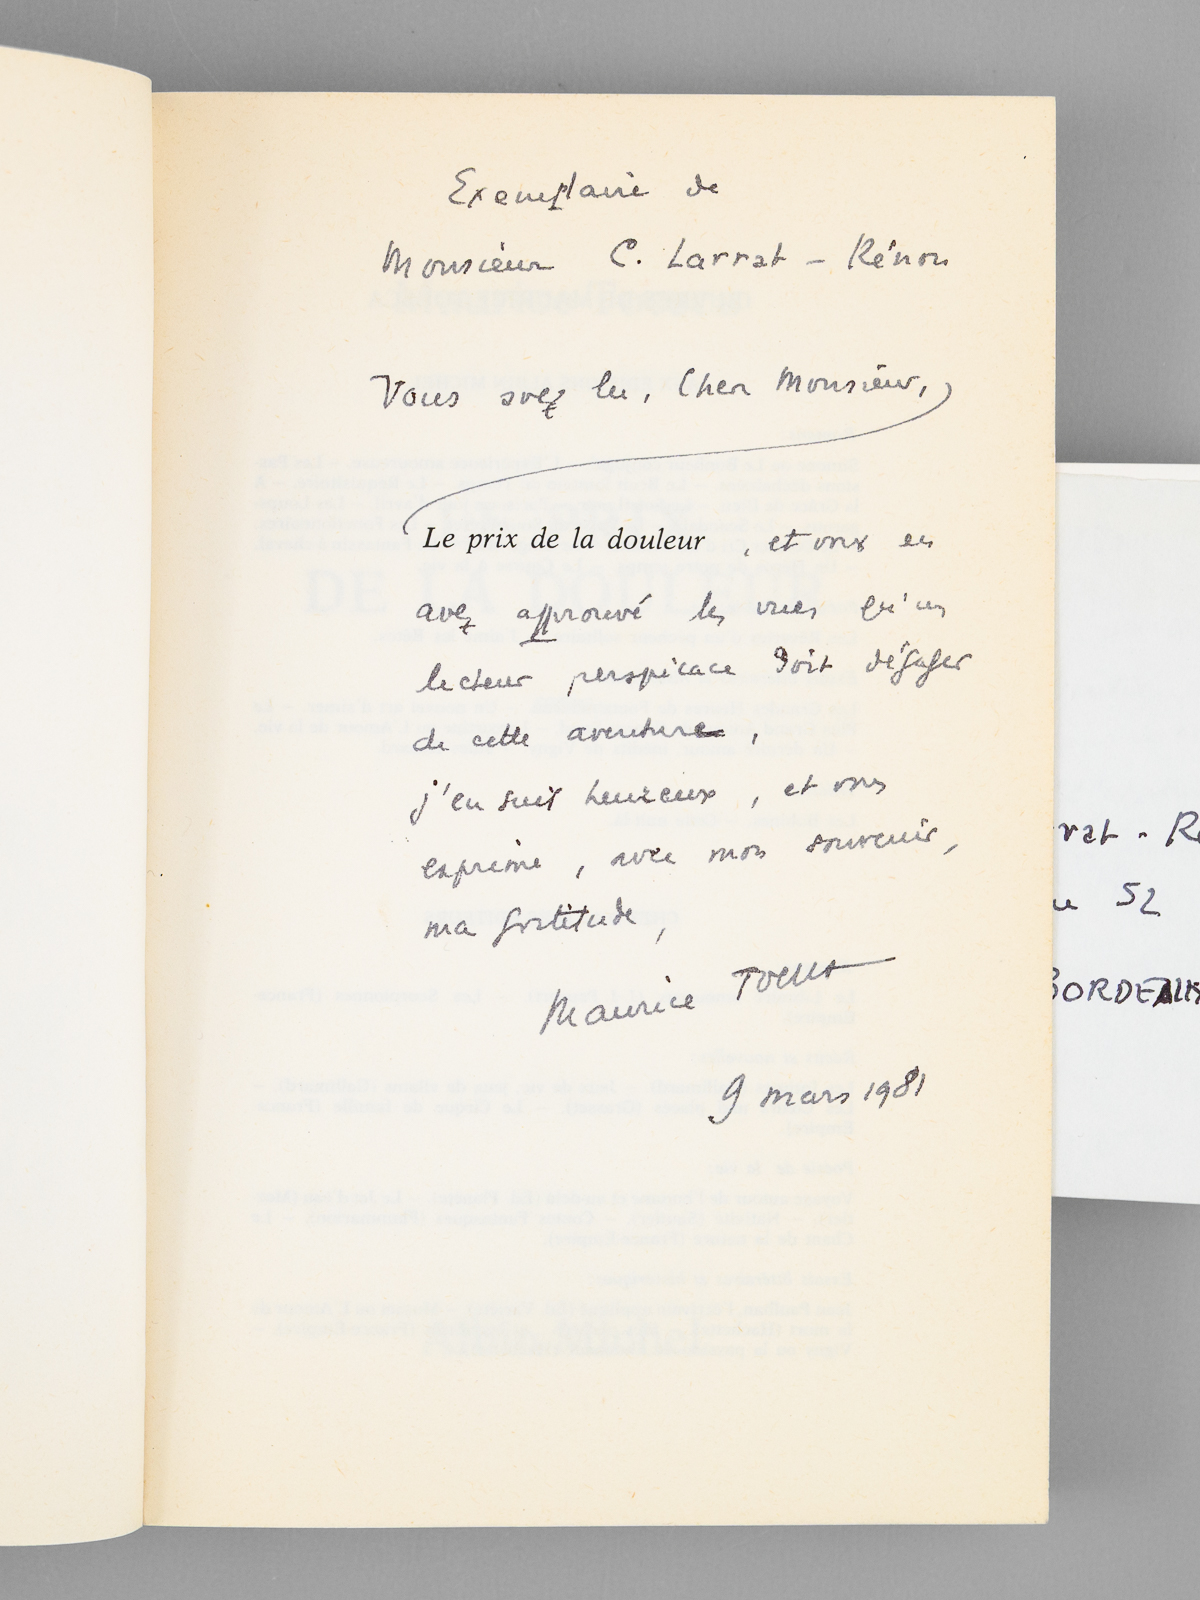 Exemplaire de
Monsieur C. Larrat - Rénon
Vous avez lu, Cher Monsieur,
Le prix de la douleur, et vous en
avez approuvé les vues qu'un
lecteur perspicace doit dégager
de cette aventure,
j'en suis heureux, et vous
exprime, avec mon souvenir,
ma gratitude,
Maurice Toesca
9 mars 1981
rrat - Ré
52
BORDEAUX